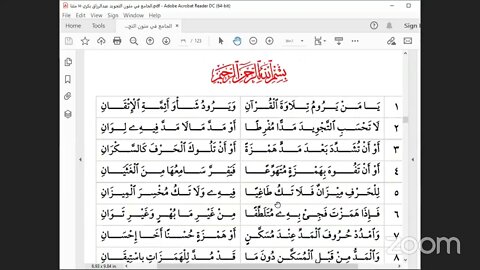 الجامع في متون التجويد عبدالرزاق بكري ١٥ متنا.pdf - Adobe Acrobat Reader DC (64-bit)
الجامع في متون التج...
٣٩ / 123
بِسْمِ اللَّهِ الرَّحْمَنِ الرَّحِيمِ
١ يَا مَنْ يَرُومُ تِلَاوَةَ الْقُرْآنِ وَيَرُودُ شَأْوَ أَئِمَّةِ الْإِتْقَانِ
٢ لَا تَحْسَبِ التَّجْوِيدَ مَدًّا مُفْرِطًا أَوْ مَدَّ مَا لَا مَدَّ فِيهِ لِوَانِ
٣ أَوْ أَنْ تُشَدِّدَ بَعْدَ مَدٍّ هَمْزَةً أَوْ أَنْ تَلُوكَ الْحَرْفَ كَالسَّكْرَانِ
٤ أَوْ أَنْ تَفُوهَ بِهَمْزَةٍ مُتَهَوِّعًا فَيَفِرَّ سَامِعُهَا مِنَ الْغَثَيَانِ
٥ لِلْحَرْفِ مِيزَانٌ فَلَا تَكُ طَاغِيًا فِيهِ وَلَا تَكُ مُخْسِرَ الْمِيزَانِ
٦ فَإِذَا هَمَزْتَ فَجِئْ بِهِ مُتَلَطِّفًا مِنْ غَيْرِ مَا بُهْرٍ وَغَيْرِ تَوَانِ
٧ وَامْدُدْ حُرُوفَ الْمَدِّ عِنْدَ مُسَكَّنٍ أَوْ هَمْزَةٍ حُسْنًا أَخَا إِحْسَانِ
٨ وَالْمَدُّ مِنْ قَبْلِ الْمُسَكَّنِ دُونَ مَا قَدْ مُدَّ لِلْهَمَزَاتِ بِاسْتِيقَانِ
8.93 x 9.84 in
zoom